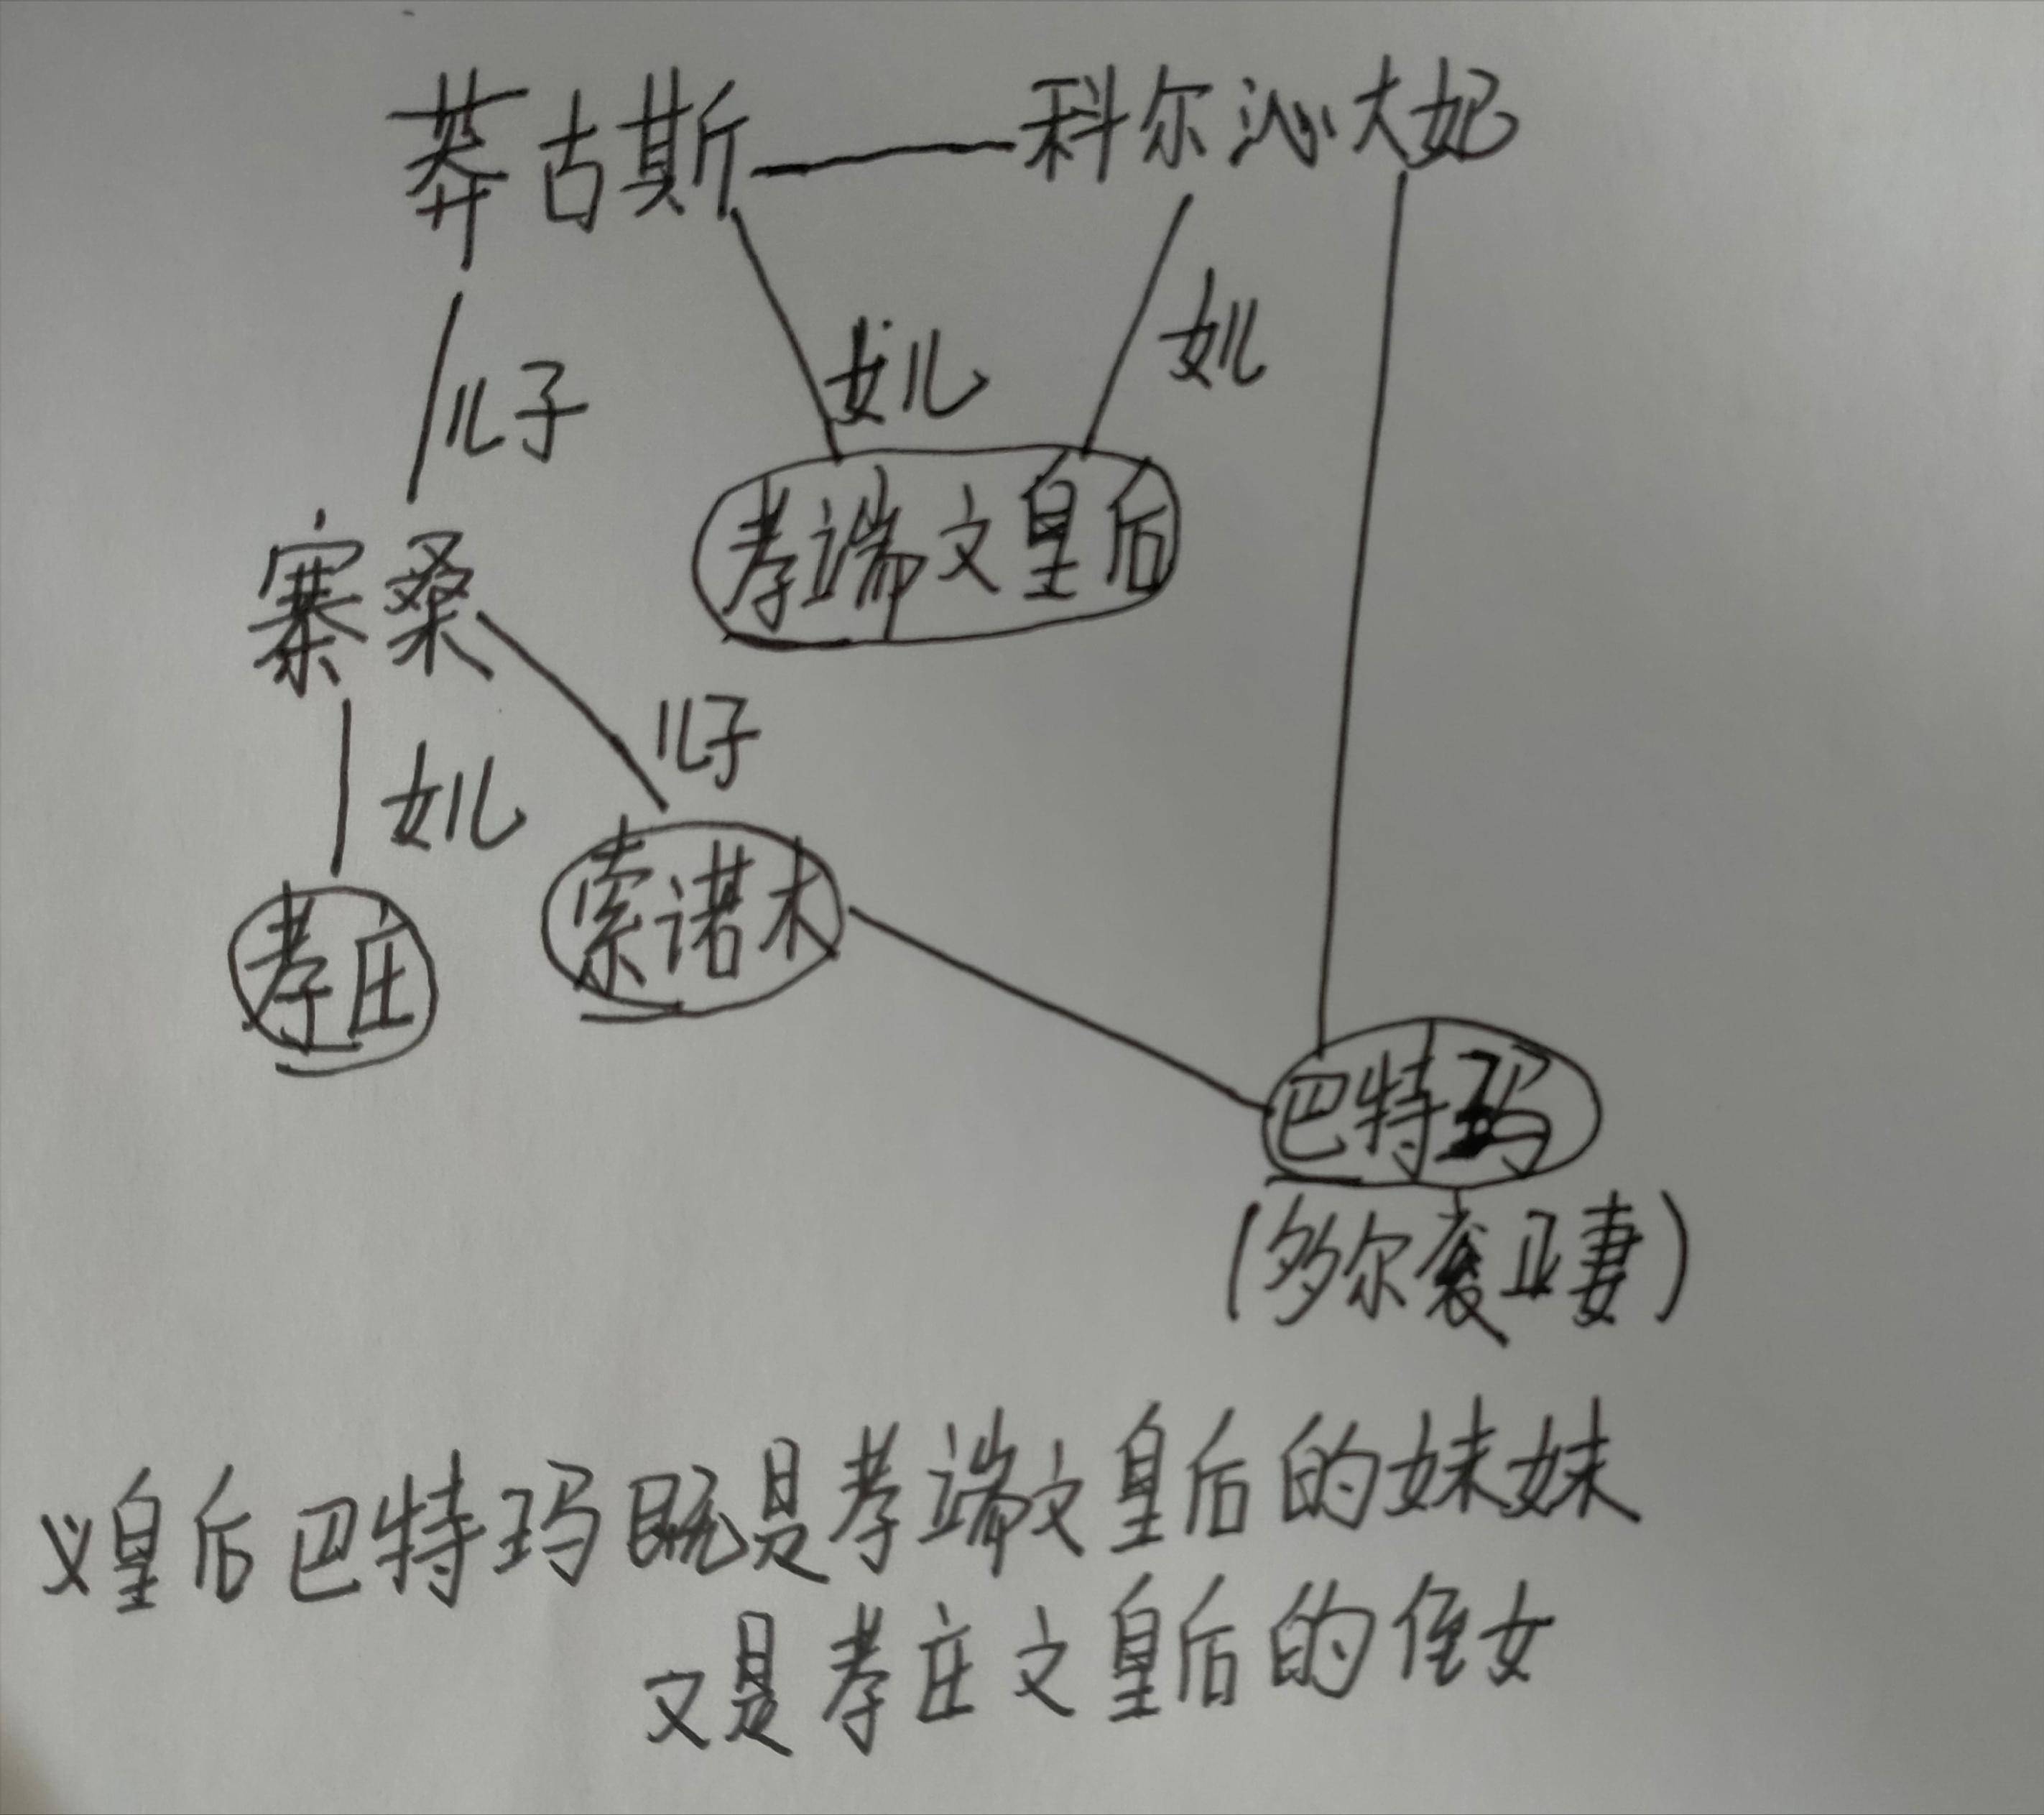 莽古斯 科尔沁大妃
女儿
女儿
儿子
孝端文皇后
寨桑
儿子
女儿
索诺木
孝庄
巴特玛
(多尔衮正妻)
义皇后巴特玛既是孝端文皇后的妹妹
又是孝庄文皇后的侄女